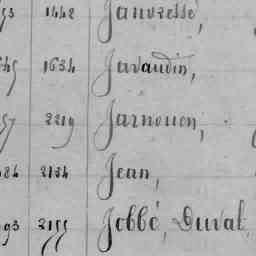 1442 Janvresse,
1634 Javaudin,
2219 Jarnouen,
2134 Jean,
93 2155 Jobbé, Duval,